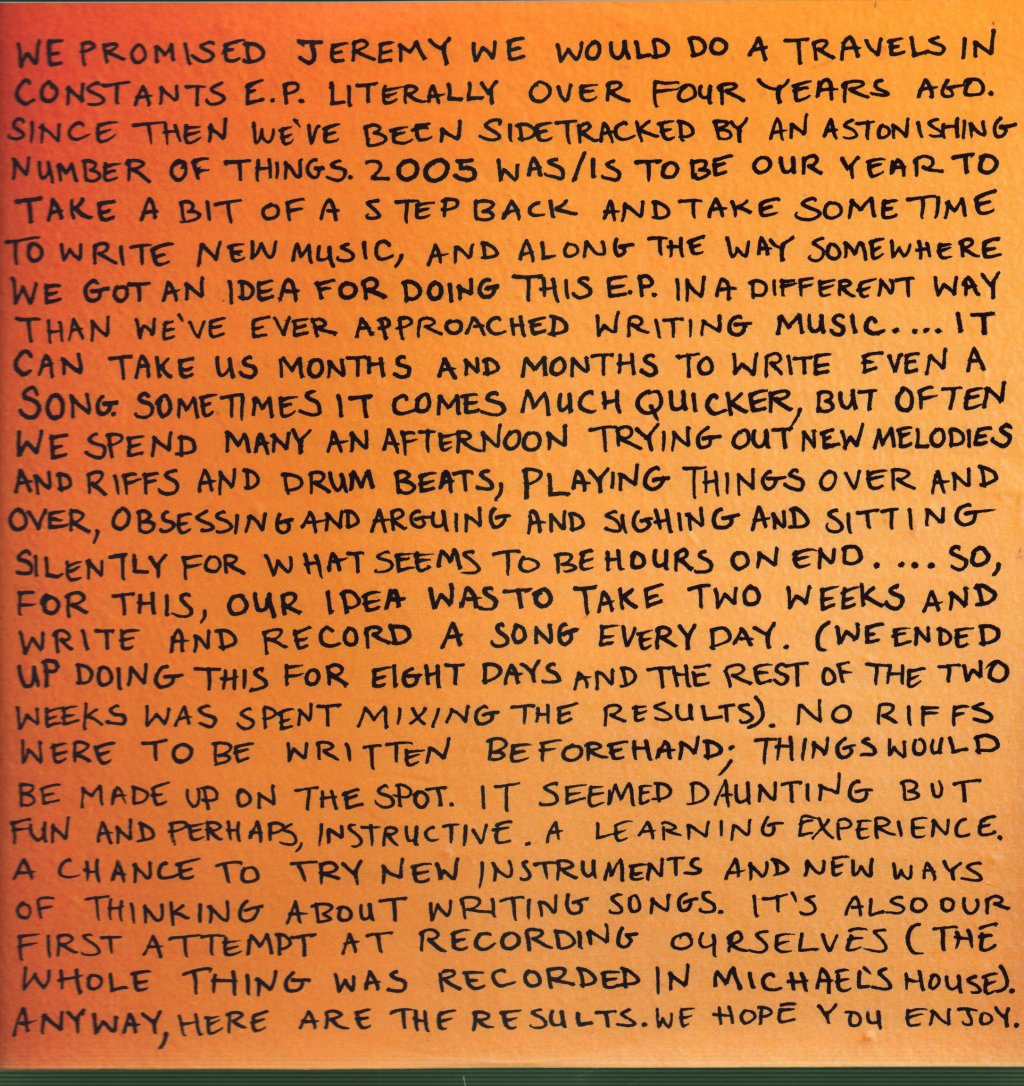 WE PROMISED JEREMY WE WOULD DO A TRAVELS IN
CONSTANTS E.P. LITERALLY OVER FOUR YEARS AGO.
SINCE THEN WE'VE BEEN SIDETRACKED BY AN ASTONISHING
NUMBER OF THINGS. 2005 WAS/IS TO BE OUR YEAR TO
TAKE A BIT OF A STEP BACK AND TAKE SOME TIME
TO WRITE NEW MUSIC, AND ALONG THE WAY SOMEWHERE
WE GOT AN IDEA FOR DOING THIS E.P. IN A DIFFERENT WAY
THAN WE'VE EVER APPROACHED WRITING MUSIC.... IT
CAN TAKE US MONTHS AND MONTHS TO WRITE EVEN A
SONG. SOMETIMES IT COMES MUCH QUICKER, BUT OFTEN
WE SPEND MANY AN AFTERNOON TRYING OUT NEW MELODIES
AND RIFFS AND DRUM BEATS, PLAYING THINGS OVER AND
OVER, OBSESSING AND ARGUING AND SIGHING AND SITTING
SILENTLY FOR WHAT SEEMS TO BE HOURS ON END. .... SO,
FOR THIS, OUR IDEA WAS TO TAKE TWO WEEKS AND
WRITE AND RECORD A SONG EVERY DAY. (WE ENDED
UP DOING THIS FOR EIGHT DAYS AND THE REST OF THE TWO
WEEKS WAS SPENT MIXING THE RESULTS). NO RIFFS
WERE TO BE WRITTEN BEFOREHAND; THINGS WOULD
BE MADE UP ON THE SPOT. IT SEEMED DAUNTING BUT
FUN AND PERHAPS, INSTRUCTIVE. A LEARNING EXPERIENCE.
A CHANCE TO TRY NEW INSTRUMENTS AND NEW WAYS
OF THINKING ABOUT WRITING SONGS. IT'S ALSO OUR
FIRST ATTEMPT AT RECORDING OURSELVES (THE
WHOLE THING WAS RECORDED IN MICHAEL'S HOUSE).
ANYWAY, HERE ARE THE RESULTS. WE HOPE YOU ENJOY.